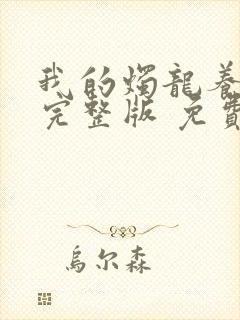 我的燭龍養
完整版 免費
烏尔森